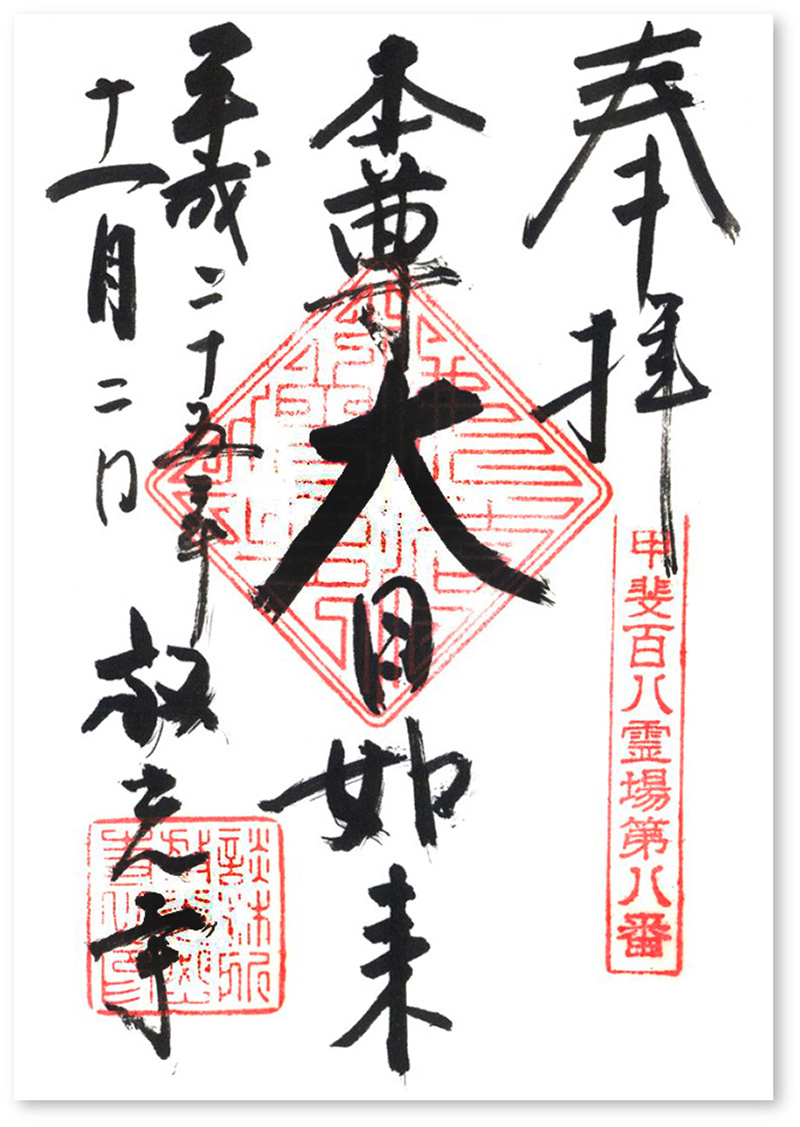 奉拝
甲斐百八霊場第八番
本尊大日如来
平成二十五年
十一月二日
放光寺